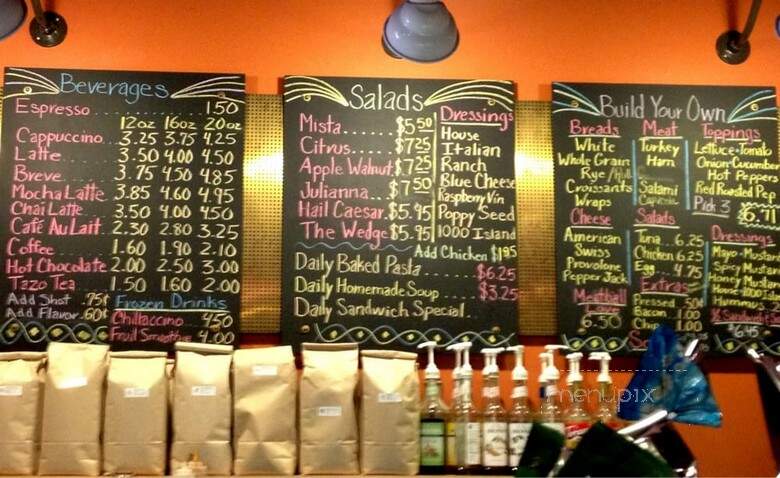 Beverages
Espresso 1.50
12oz 16oz 20oz
Cappuccino 3.25 3.75 4.25
Latte 3.50 4.00 4.50
Breve 3.75 4.50 4.85
Mocha Latte 3.85 4.60 4.95
Chai Latte 3.50 4.00 4.50
Café Au Lait 2.30 2.80 3.25
Coffee 1.60 1.90 2.10
Hot Chocolate 2.00 2.50 3.00
Tazo Tea 1.50 1.60 2.00
Add Shot .75¢
Add Flavor .60¢
Frozen Drinks
Chillaccino 4.50
Fruit Smoothie 4.00
Salads
Mista $5.50
Citrus $7.25
Apple Walnut $7.25
Julianna $7.50
Hail Caesar $5.95
The Wedge $5.95
Dressings
House
Italian
Ranch
Blue Cheese
Raspberry Vin
Poppy Seed
1000 Island
Add Chicken $1.95
Daily Baked Pasta $6.25
Daily Homemade Soup $3.25
Daily Sandwich Special
Build Your Own
Breads
White
Whole Grain
Rye
Croissants
Wraps
Cheese
American
Swiss
Provolone
Pepper Jack
Meatball
6.50
Meat
Turkey
Ham
Salami
Salads
Tuna 6.25
Chicken 6.25
Egg 4.75
Extras
Pressed .50¢
Bacon 1.00
1.00
Toppings
Lettuce Tomato
Onion Cucumber
Hot Peppers
Red Roasted Pep
Pick 3
Dressings
Mayo Mustard
Spicy Mustard
Honey Mustard
Hummus
menupix